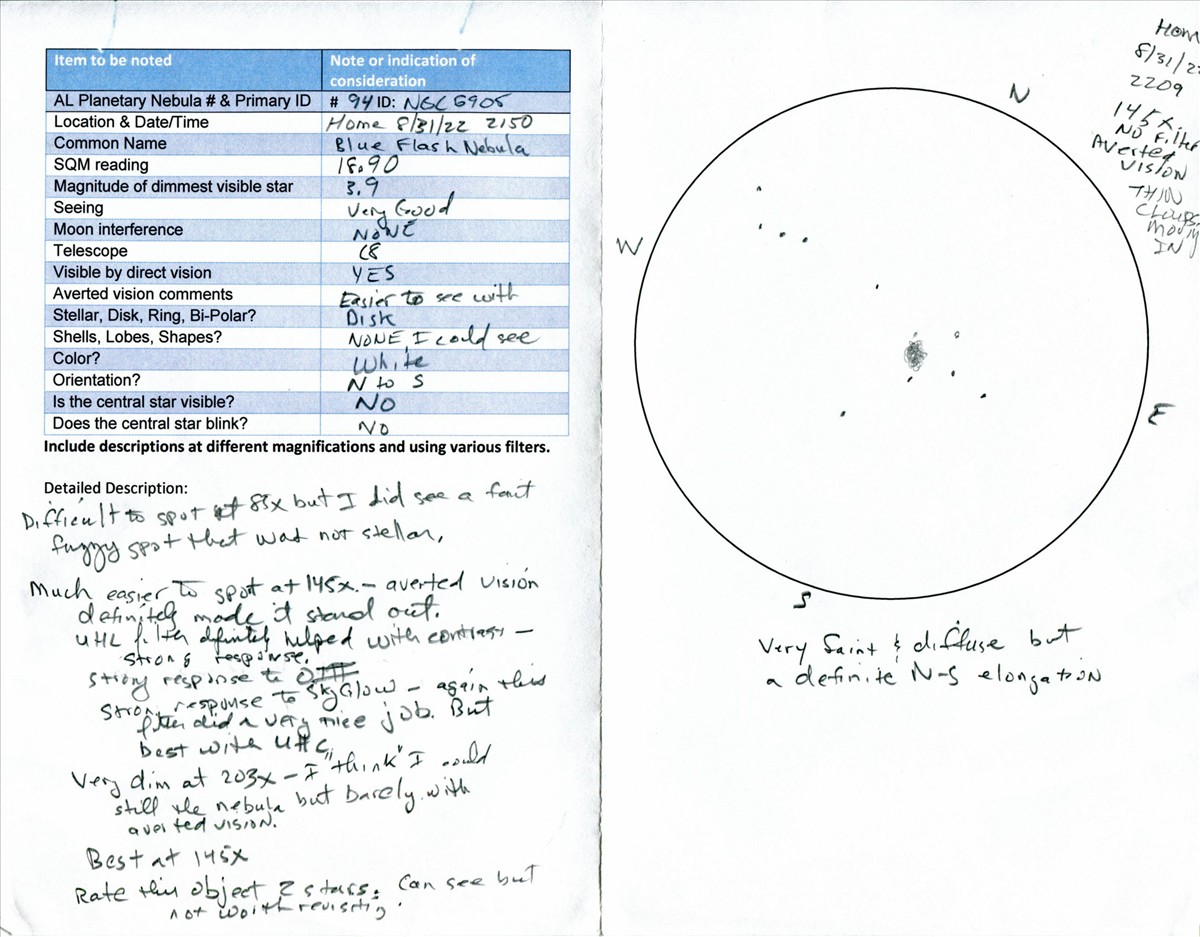 Item to be noted Note or indication of consideration
AL Planetary Nebula # & Primary ID # 94 ID: NGC 6905
Location & Date/Time Home 8/31/22 2150
Common Name Blue Flash Nebula
SQM reading 18.90
Magnitude of dimmest visible star 3.9
Seeing Very Good
Moon interference NONE
Telescope C8
Visible by direct vision YES
Averted vision comments Easier to see with
Stellar, Disk, Ring, Bi-Polar? Disk
Shells, Lobes, Shapes? NONE I could see
Color? White
Orientation? N to S
Is the central star visible? NO
Does the central star blink? NO
Include descriptions at different magnifications and using various filters.
Detailed Description:
Difficult to spot at 85x but I did see a faint
fuzzy spot that was not stellar.
Much easier to spot at 145x. – averted vision
definitely made it stand out.
UHC filter definitely helped with contrast –
strong response.
strong response to OIII
strong response to SkyGlow – again this
filter did a very nice job. But
best with UHC
Very dim at 203x – I "think" I could
still the nebula but barely with
averted vision.
Best at 145x
Rate this object 2 stars. Can see but
not worth revisiting.
Home
8/31/22
2209
145x
NO Filter
Averted
VISION
THIN
CLOUDS
MOVING
IN
N
W
E
S
Very faint & diffuse but
a definite N-S elongation